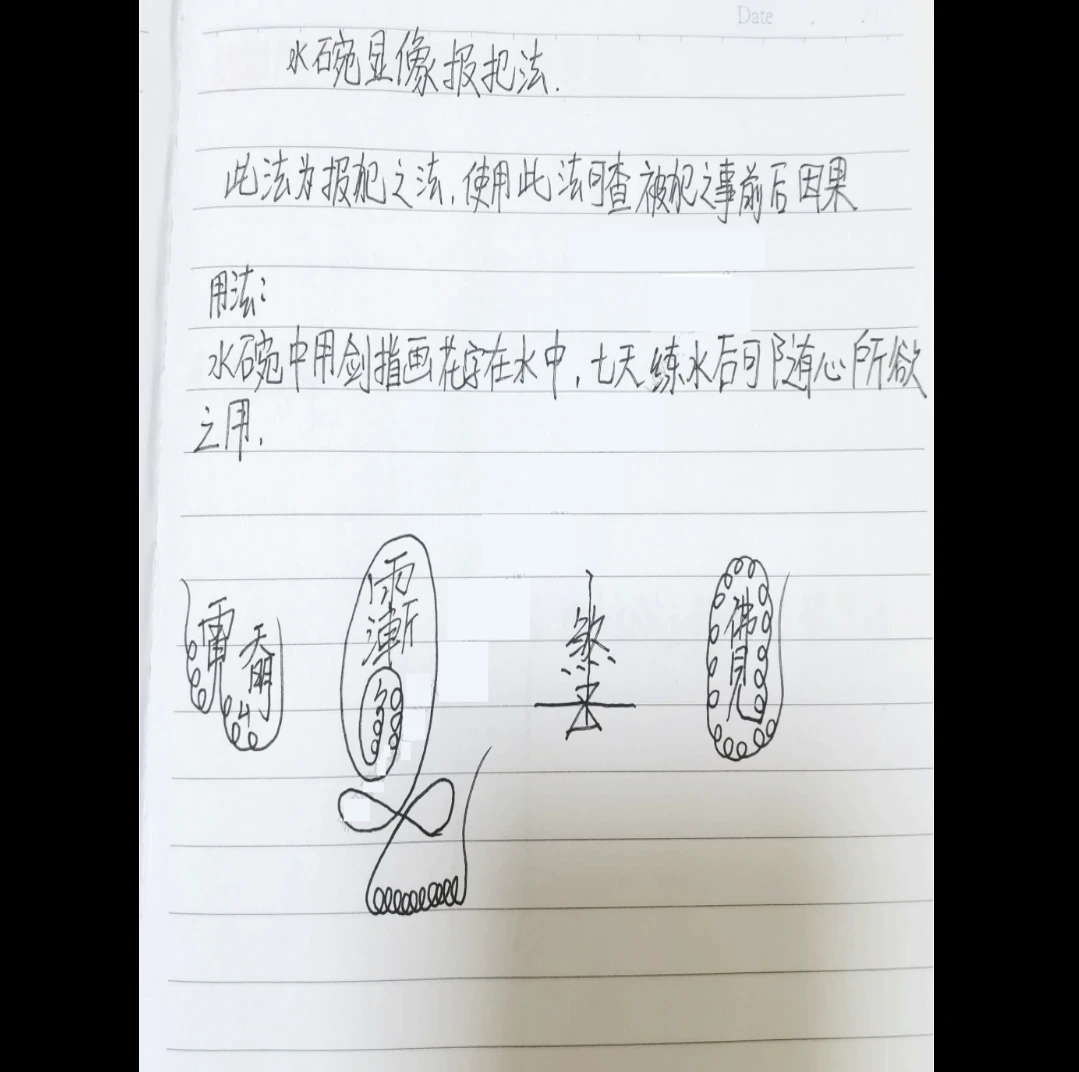 Date
水碗显像报犯法.
此法为报犯之法,使用此法可查被犯之事前后因果
用法:
水碗中用剑指画花字在水中,七天练水后可随心所欲
之用,
佛
見